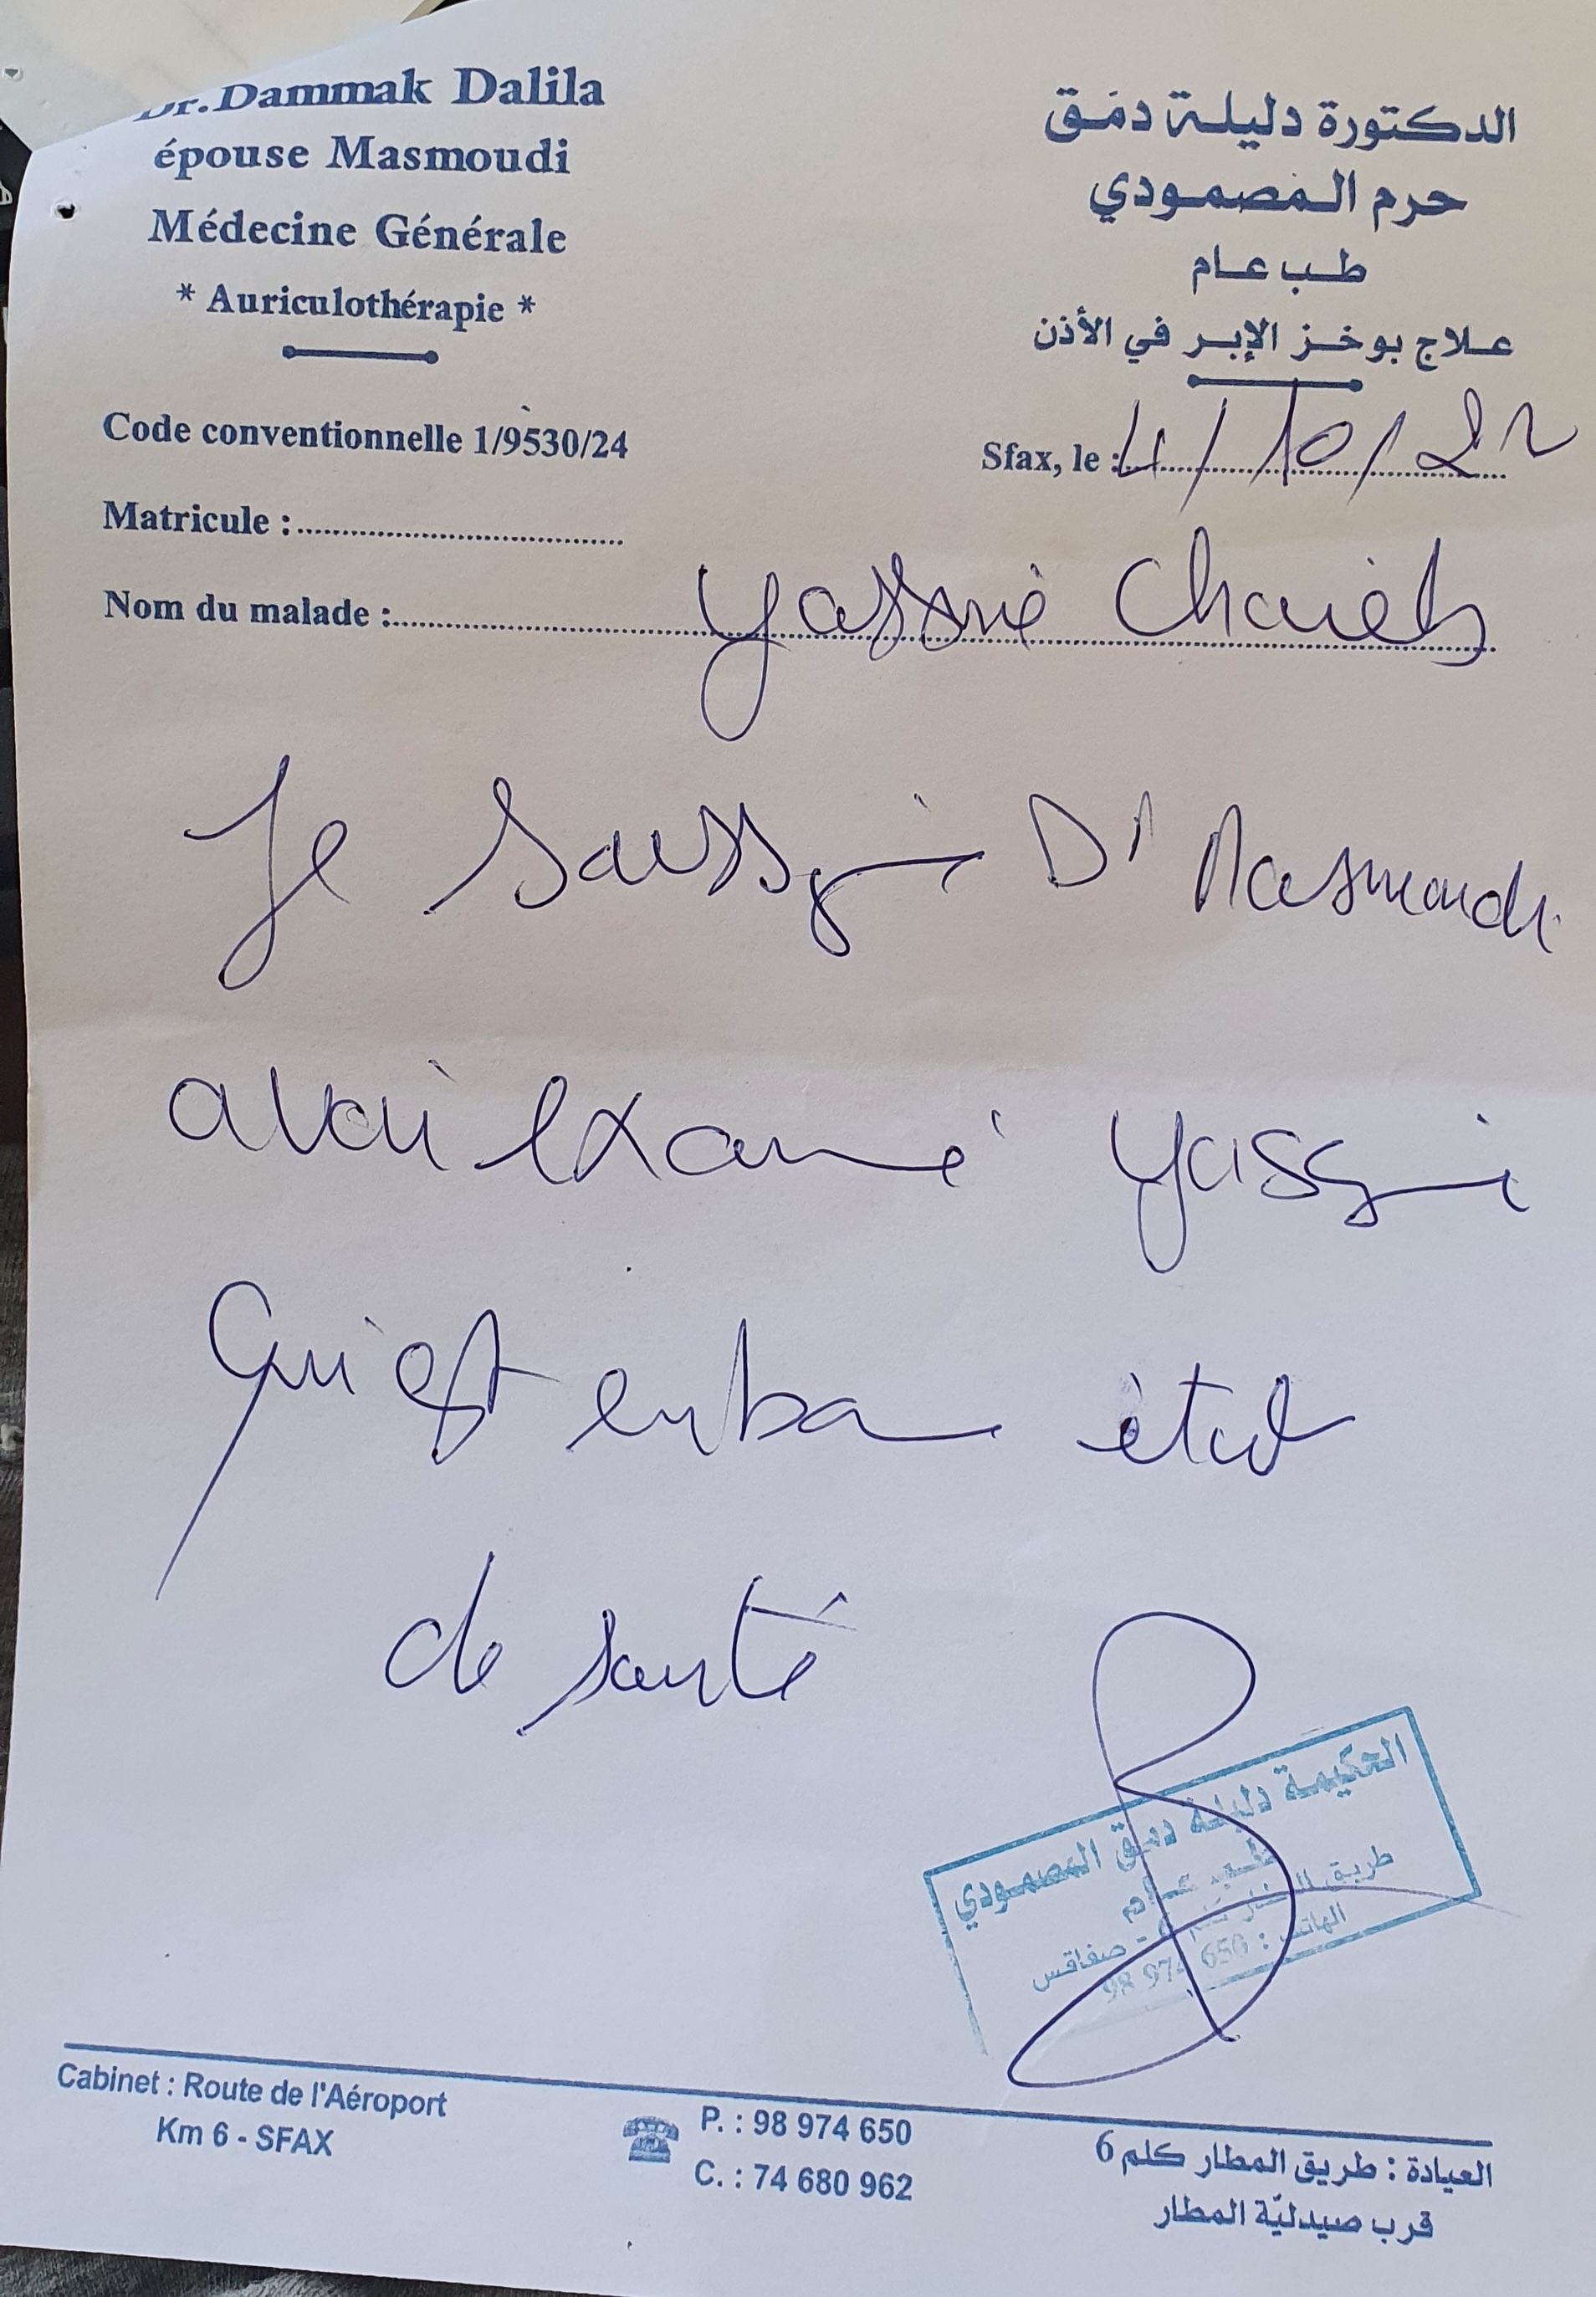 Dr. Dammak Dalila
épouse Masmoudi
Médecine Générale
* Auriculothérapie *
الدكتورة دليلة دمق
حرم المصمودي
طب عام
علاج بوخز الإبر في الأذن
Code conventionnelle 1/9530/24
Sfax, le : 4/10/22
Matricule :
Nom du malade : Yassine Chaieb
Je soussigné Dr Masmoudi
avoir examiné Yassine
qui est en bon état
de santé
الحكيمة دليلة دمق المصمودي
طب عام
طريق المطار كلم 6 - صفاقس
الهاتف : 98 974 650
Cabinet : Route de l'Aéroport
Km 6 - SFAX
P. : 98 974 650
C. : 74 680 962
العيادة : طريق المطار كلم 6
قرب صيدليّة المطار